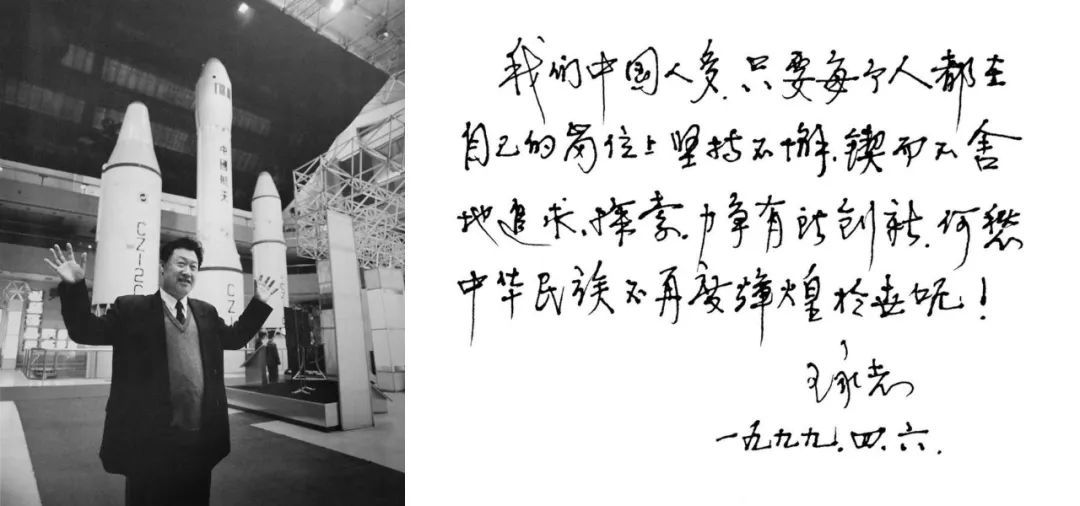 中國航天
我们中国人多,只要每个人都在
自己的岗位上坚持不懈、锲而不舍
地追求、探索,力争有所创新,何愁
中华民族不再度辉煌於世呢!
王永志
一九九九.四.六.